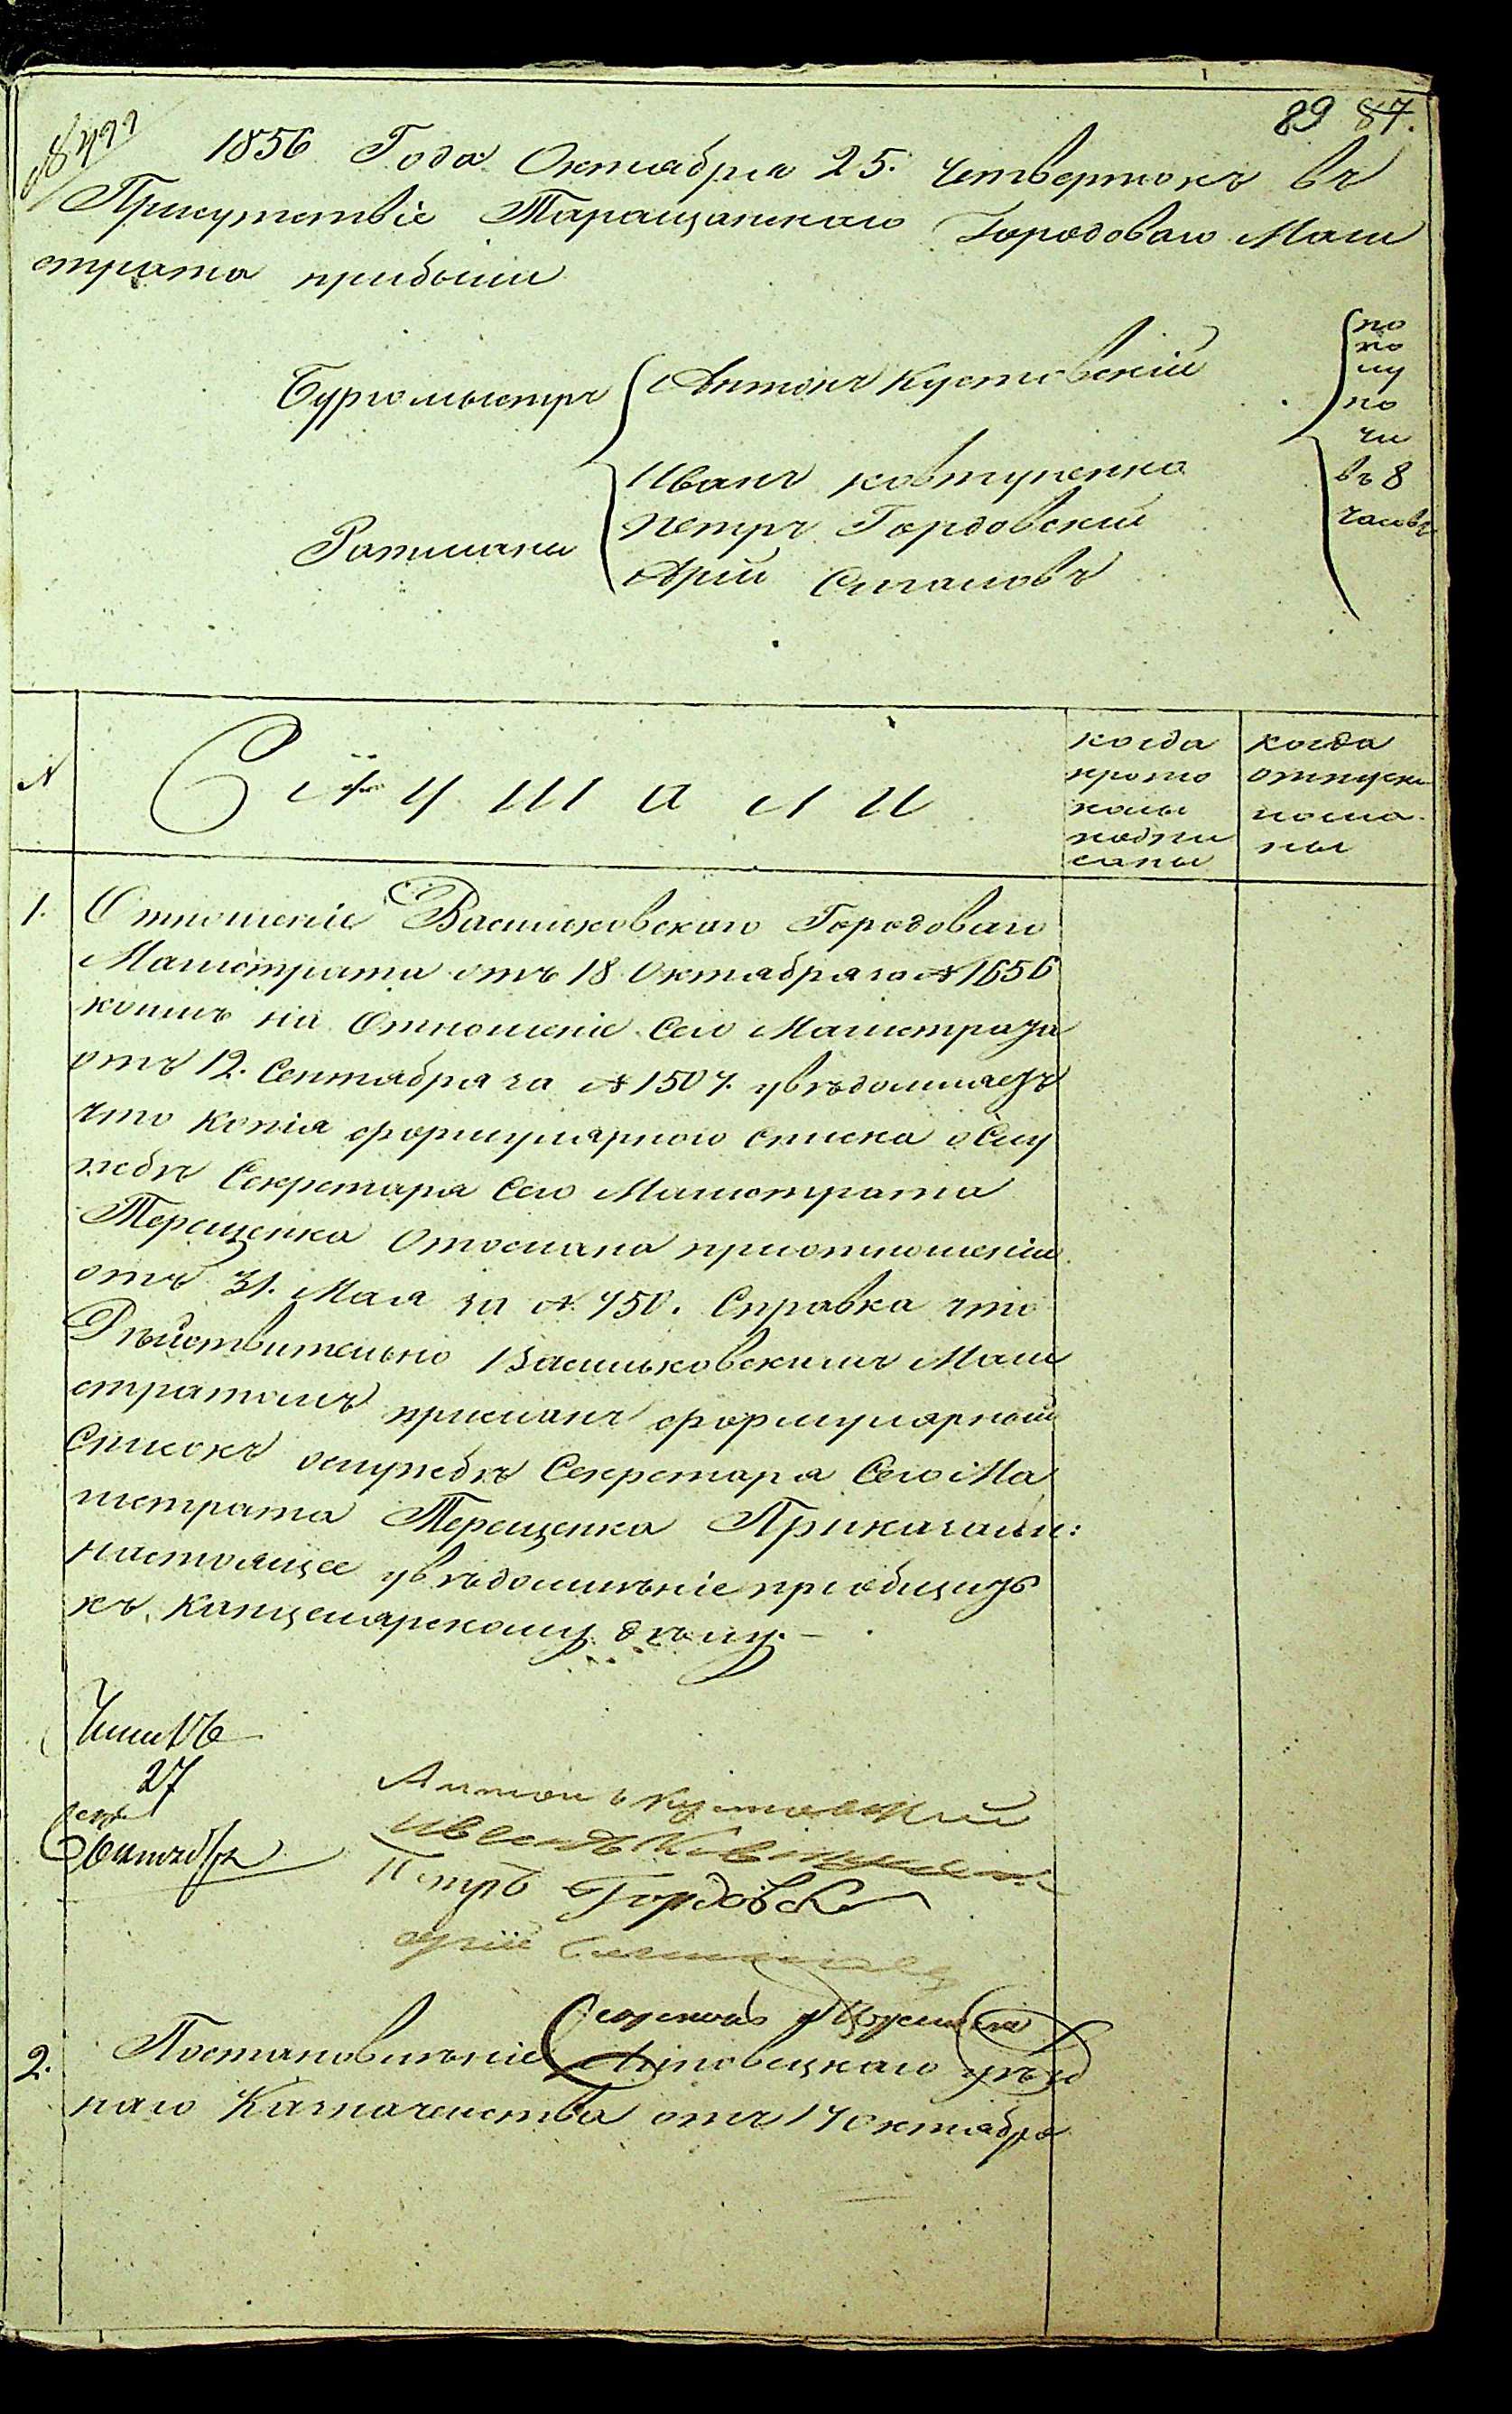 89 87.
1856 Года Октября 25. Четвертокъ въ
Присутствіе Таращанскаго Городоваго Маги
страта прибыли
Бургомыстръ Антонъ Кустовскій
Ратманы
Иванъ Ковтуненко
Петръ Гордовский
Арій Сигаловъ
по
по
лу
но
чи
въ 8
часовъ
№
Слушали
когда
прото
колы
подпи
саны
когда
отпуски
посла-
ны
1. Отношеніе Васильковскаго Городоваго
Магистрата отъ 18 Октября за № 1656
коимъ на Отношеніе Сего Магистрата
отъ 12. Сентября за № 1507. увѣдомляетъ
что Копія формулярного списка о Слу
жбѣ Секретаря Сего Магистрата
Терещенка Отослана приотношеніи
отъ 31. Мая за № 750. Справка что
Дѣйствительно Васильковскимъ Маги
стратомъ присланъ формулярный
Списокъ ослужбѣ Секретаря Сего Ма
гистрата Терещенка Приказали:
настоящее увѣдомлѣніе приобщить
къ Канцелярскому дѣлу. —
27
Октября
Антонъ Кустовский
Иванъ Ковтуненко
Петръ Гордовск
Арій
Секретарь
2. Постановлѣніе Липовецкаго Уѣзд
наго Казначейства отъ 17 Октября